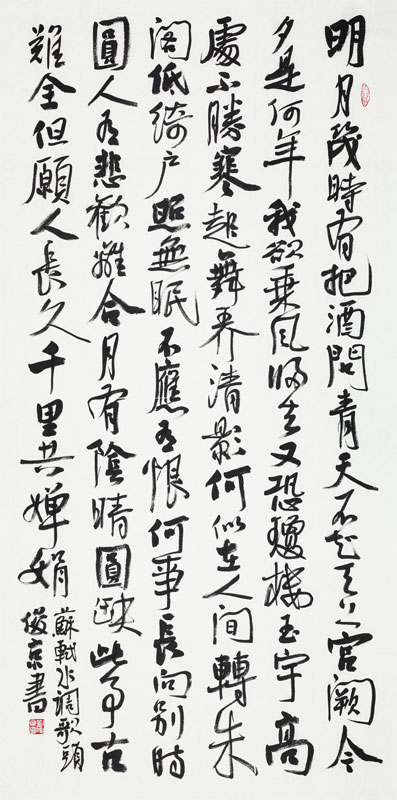 明月幾時有把酒問青天不知天上宮闕今
夕是何年我欲乘風歸去又恐瓊樓玉宇高
處不勝寒起舞弄清影何似在人間轉朱
閣低綺户照無眠不應有恨何事長向別時
圓人有悲歡離合月有陰晴圓缺此事古
難全但願人長久千里共嬋娟
蘇軾水調歌頭
俊京書